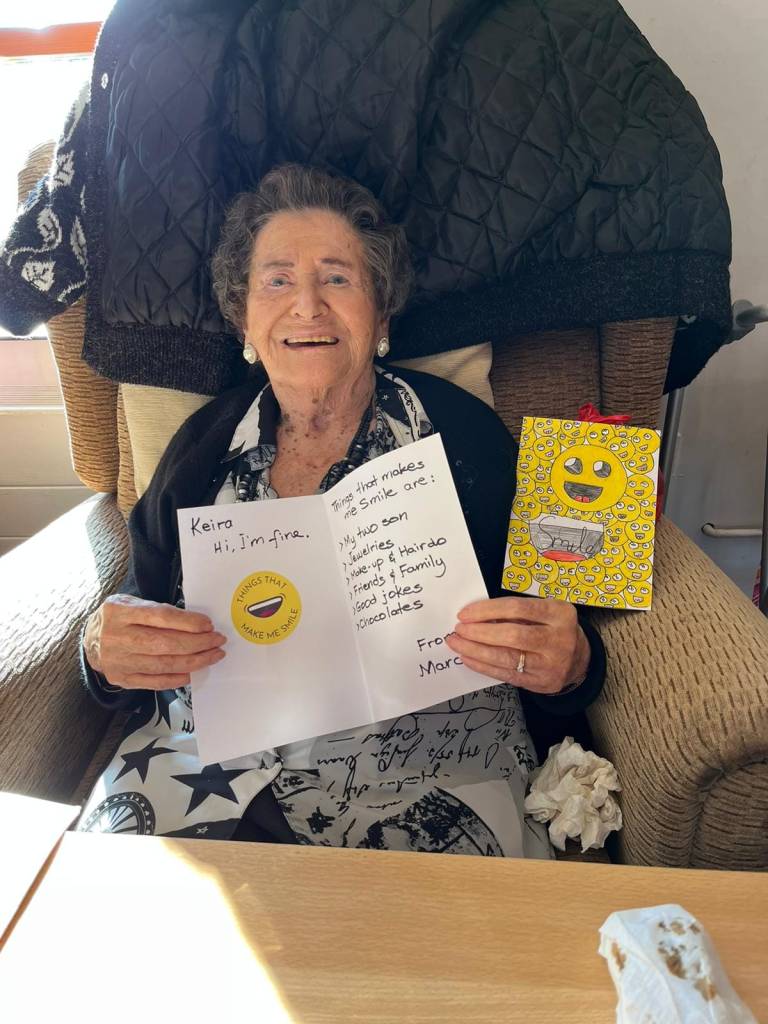 Keira
Hi, I'm fine.
THINGS THAT
MAKE ME SMILE
Things that makes
me Smile are:
> My two son
> Jewelries
> Make-up & Hairdo
> Friends & Family
> Good jokes
> Chocolates
From
Marc
Smile